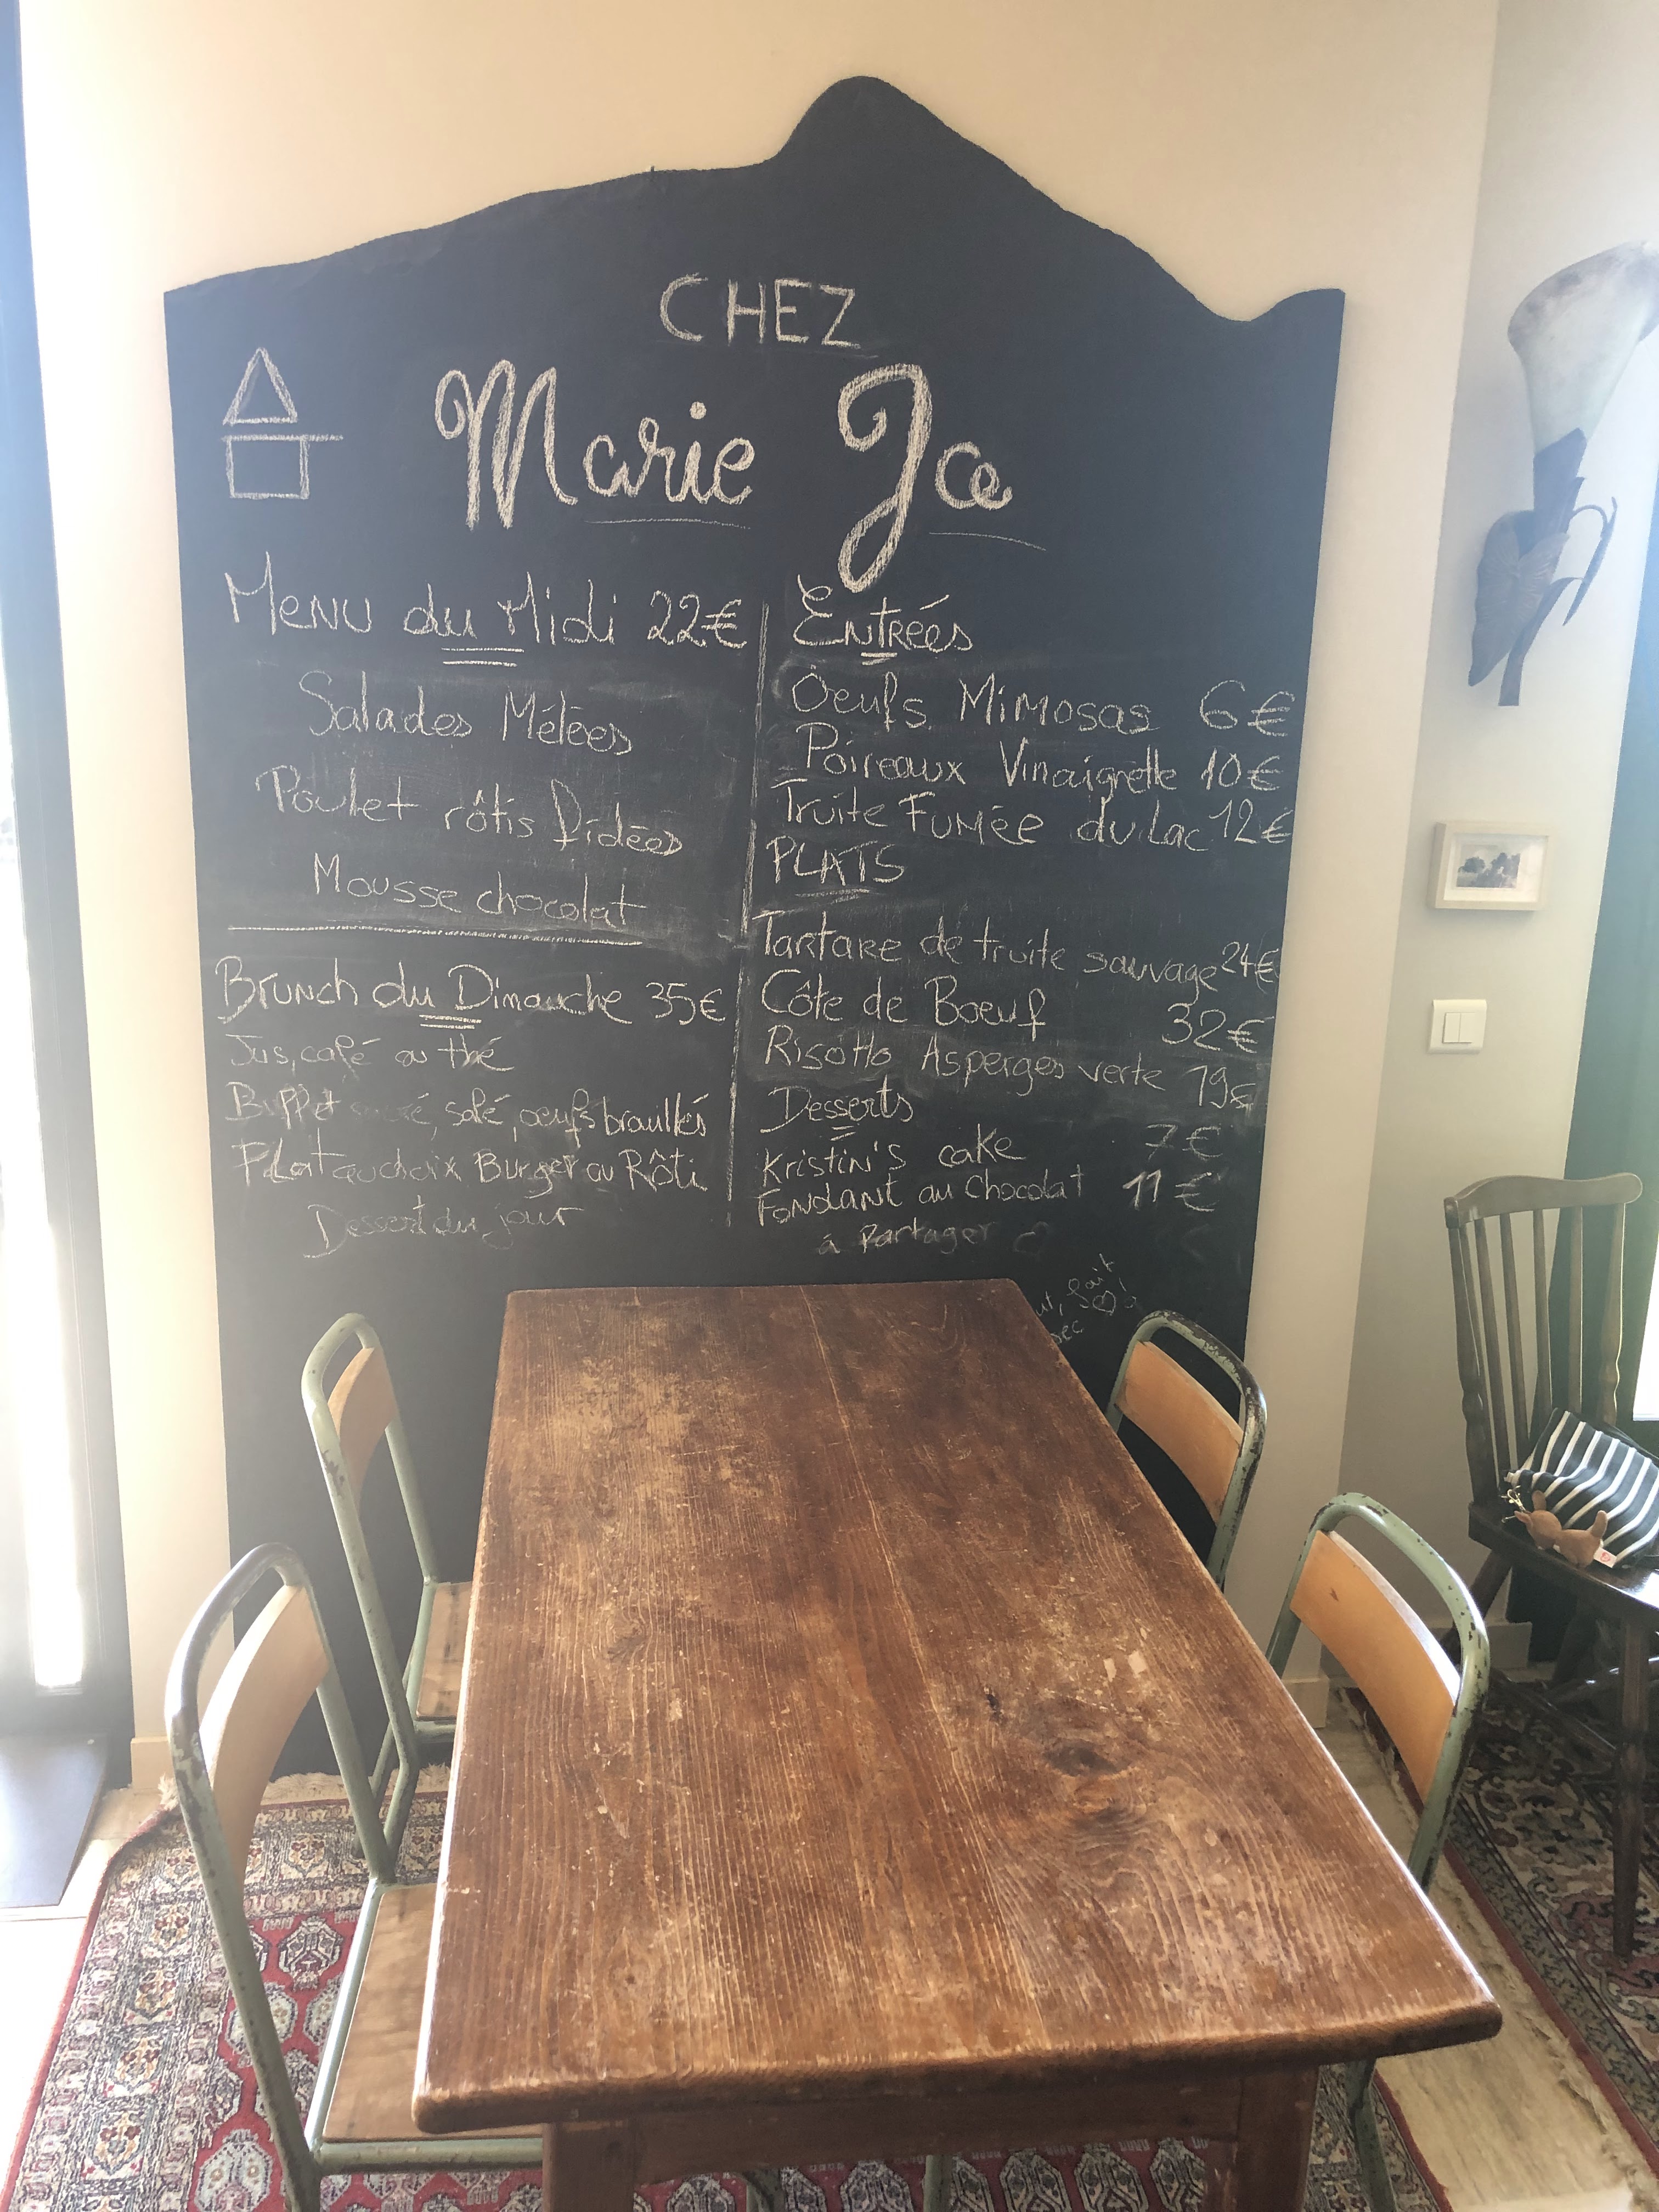 CHEZ
Marie Jo
Menu du Midi 22€
Salades Mêlées
Poulet rôtis Pidées
Mousse chocolat
Brunch du Dimanche 35€
Jus, café ou thé
Buffet sucré, salé, oeufs brouillés
Plat au choix Burger ou Rôti
Dessert du jour
Entrées
Oeufs Mimosas 6€
Poireaux Vinaigrette 10€
Truite Fumée du Lac 12€
PLATS
Tartare de truite sauvage 24€
Côte de Boeuf 32€
Risotto Asperges verte 19€
Desserts
Kristin's cake 7€
Fondant au Chocolat 11€
à Partager
fait